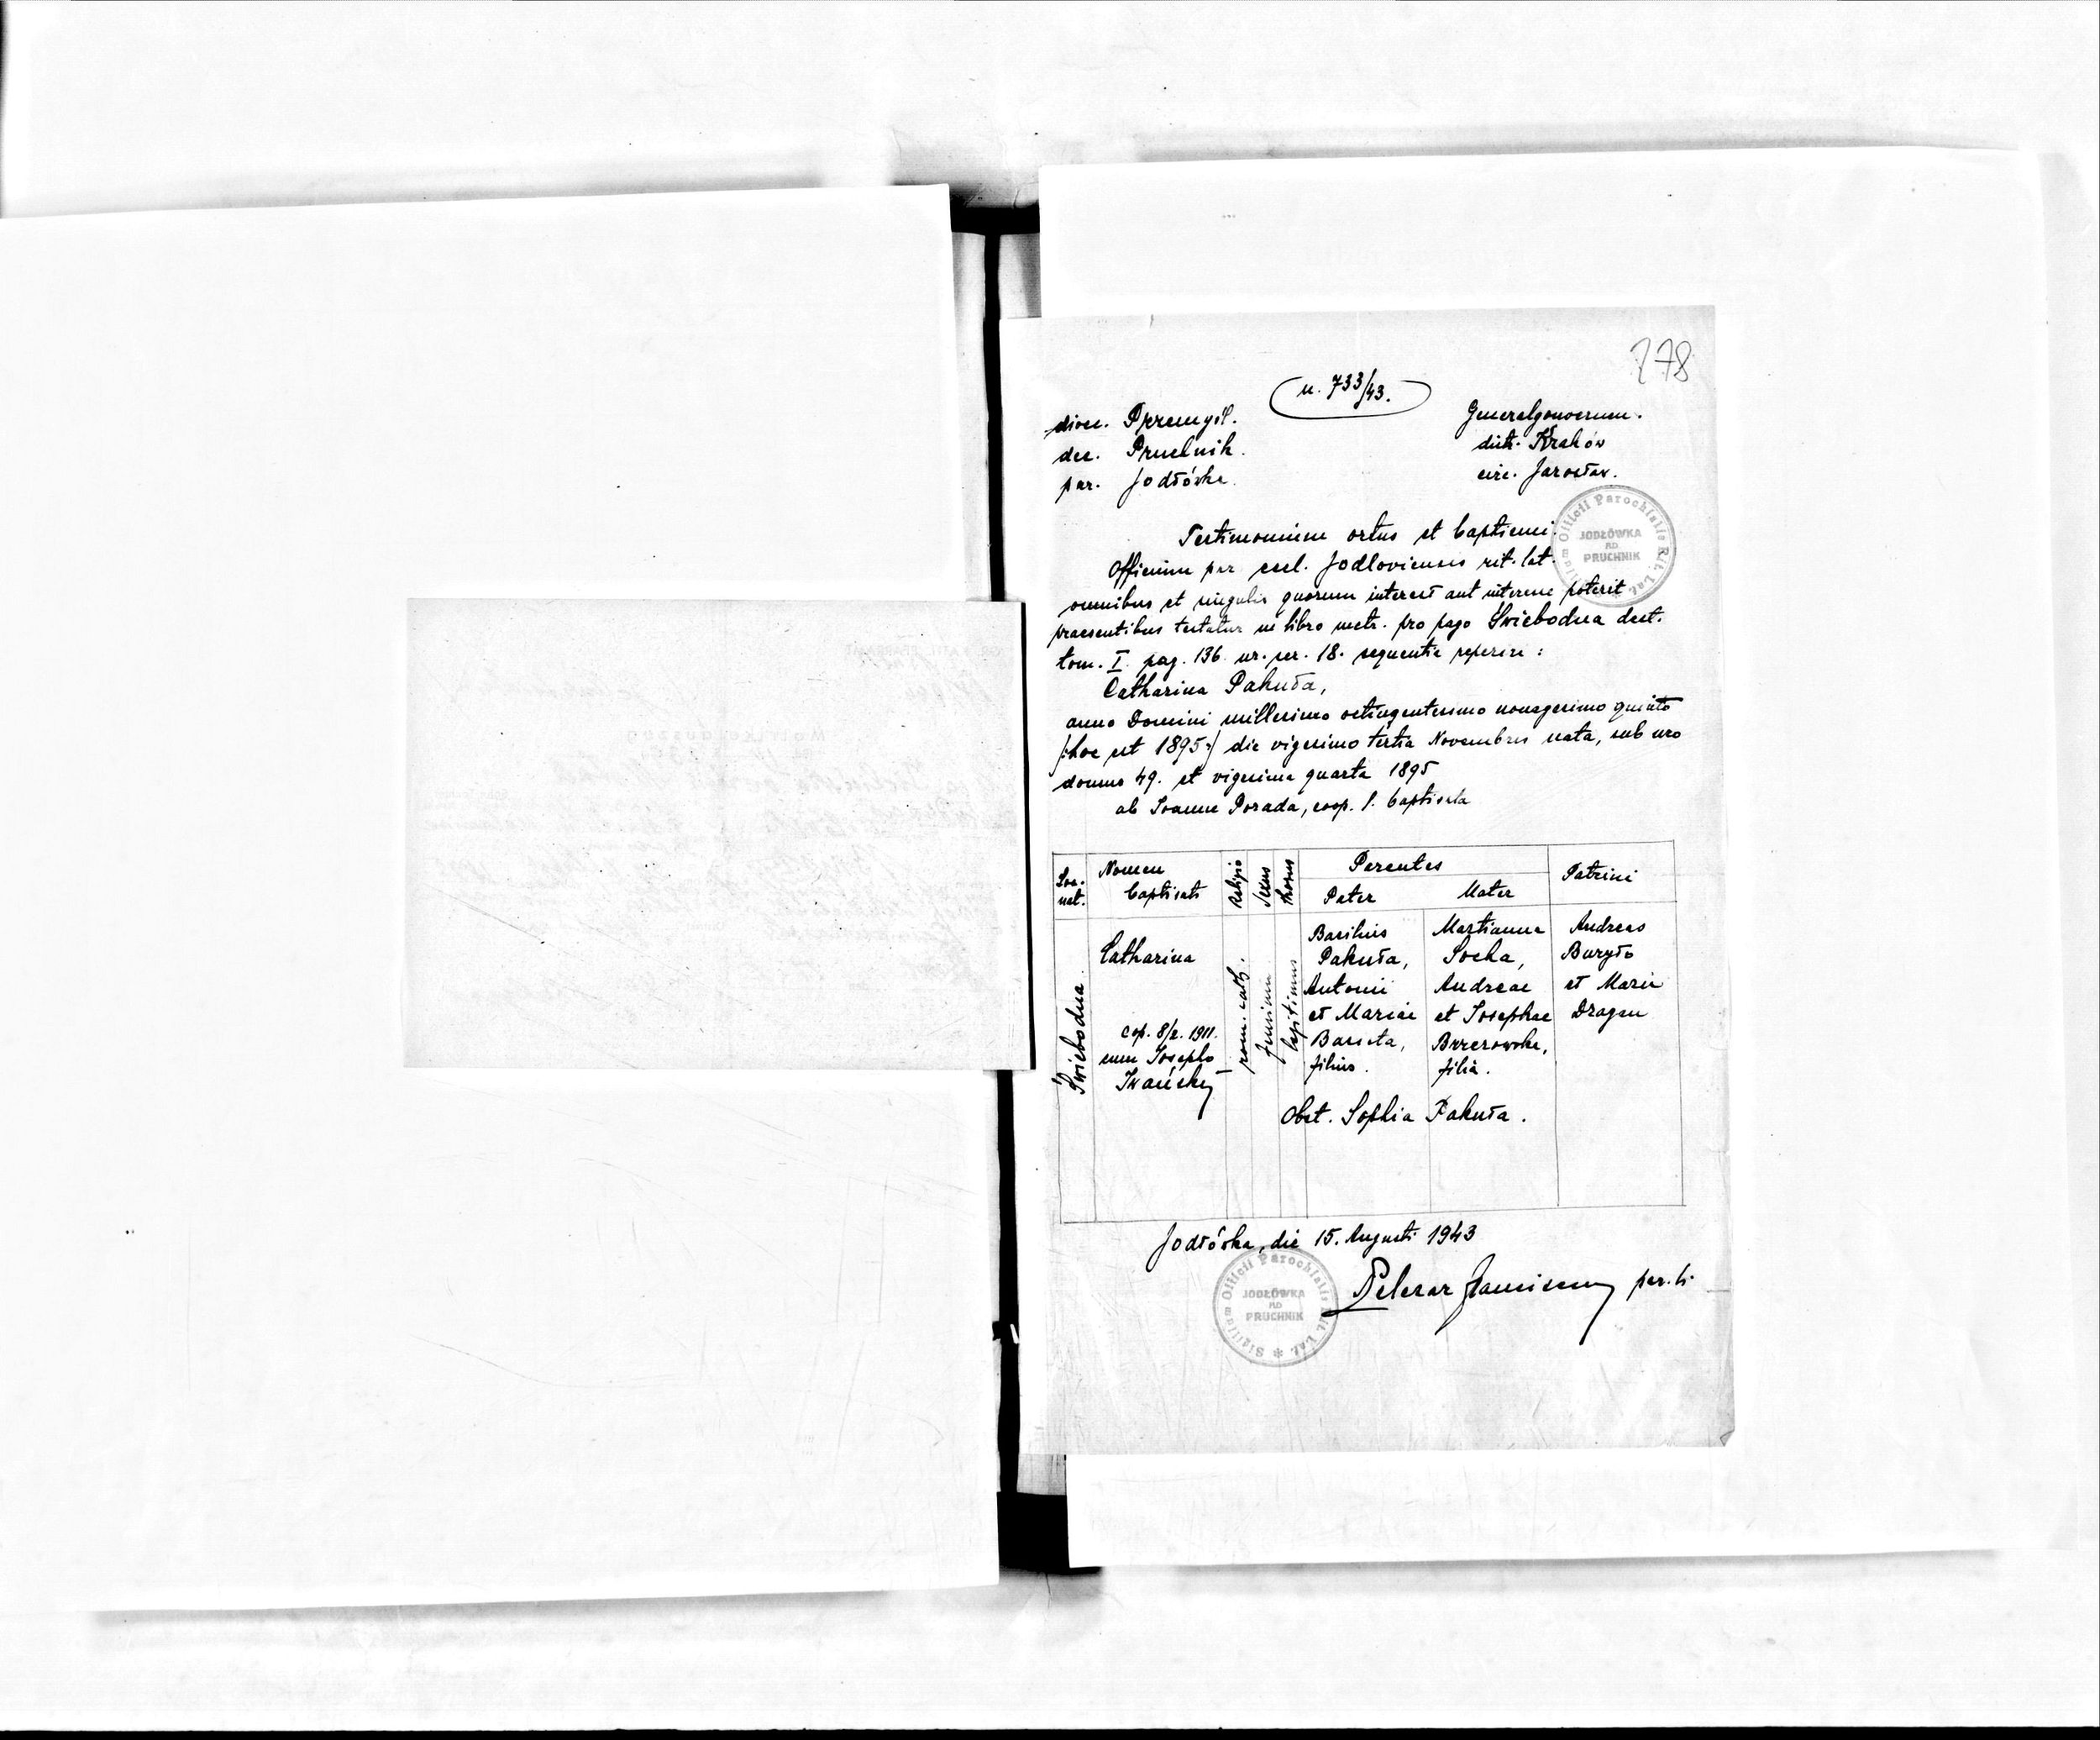 278
n. 733/43.
dioec. Przemyśl.
dec. Pruchnik.
par. Jodłówka.
Generalgouvernem.
distr. Kraków
circ. Jarosław.
Sigillum Officii Parochialis Rit. Lat. * JODŁÓWKA AD PRUCHNIK
Testimonium ortus et baptismi.
Officium par. eccl. Jodloviensis rit. lat.
omnibus et singulis quorum interest aut interesse poterit
praesentibus testatur in libro metr. pro pago Świebodna dest.
tom. I. pag. 136 nr. ser. 18. sequentia reperiri :
Catharina Pakuła,
anno Domini millesimo octingentesimo nonagesimo quinto
/:hoc est 1895:/ die vigesimo tertia Novembris nata, sub nro
domus 49. et vigesima quarta 1895
ab Ioanne Porada, coop. l. baptisata
Loc. nat.
Nomen baptisati
Religio
Sexus
Thorus
Parentes
Pater
Mater
Patrini
Świebodna
Catharina
cop. 8/2. 1911.
cum Josepho
Iwański
rom. cath.
feminin
legitimus
Basilius
Pakuła,
Antonii
et Mariae
Basista,
filius.
Marianna
Socha,
Andreae
et Josephae
Brzezowska,
filia.
Andreas
Buryło
et Maria
Dragan
Obst. Sophia Pakuła.
Jodłówka, die 15. Augusti 1943
Sigillum Officii Parochialis Rit. Lat. * JODŁÓWKA AD PRUCHNIK
Pelczar Franciscus